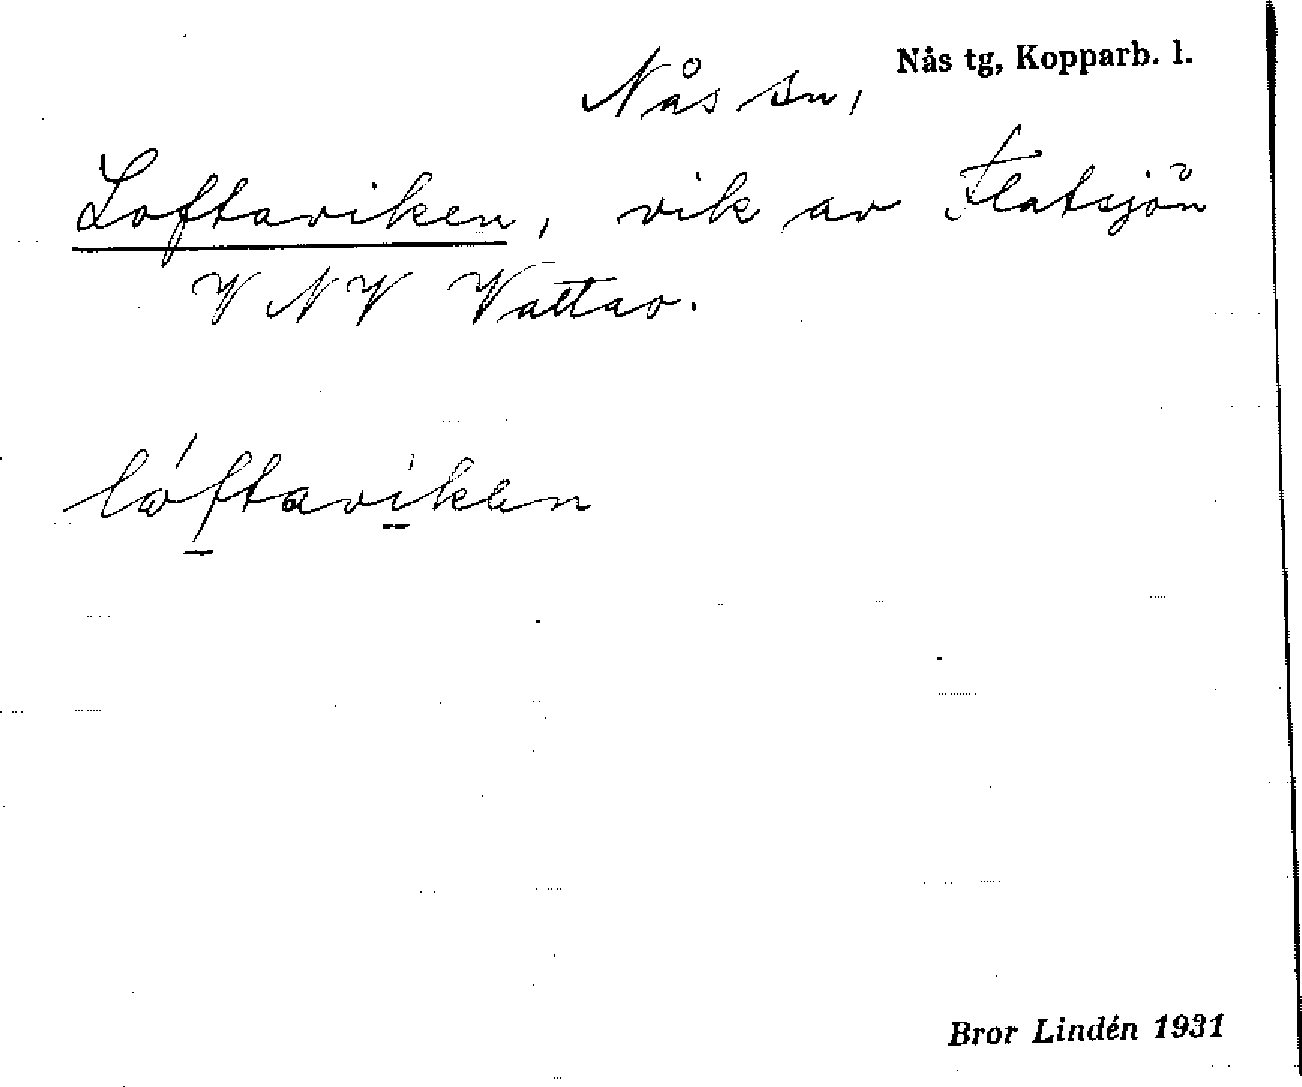 Nås tg, Kopparb. l.
Nås sn,
Loftaviken, vik av Flatsjön
V NV Vattar.
lóftavikən
Bror Lindén 1931